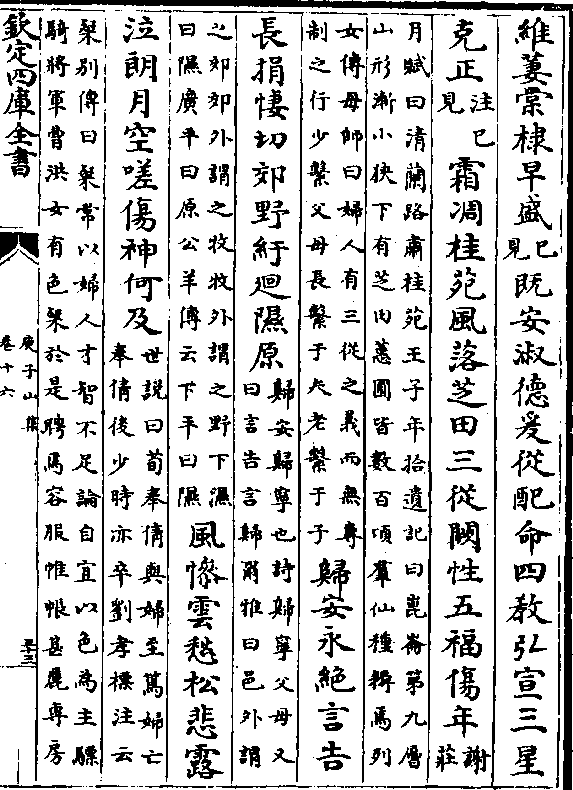 維萋棠棣早盛已見既安淑德爰從配命四教弘宣三星
克正注已見霜凋桂苑風落芝田三從闕性五福傷年謝莊
月賦曰清蘭路肅桂苑王子年拾遺記曰崑崙第九層
山形漸小狹下有芝田蕙圃皆數百頃羣仙種耨焉列
女傳母師曰婦人有三從之義而無專
制之行少繫父母長繫于夫老繫于子
歸安永絶言告
長捐悽切郊野紆廻隰原
歸安歸寧也詩歸寧父母又
曰言告言歸爾雅曰邑外謂
之郊郊外謂之牧牧外謂之野下濕
曰隰廣平曰原公羊傳云下平曰隰
風慘雲愁松悲露
泣朗月空嗟傷神何及
世說曰荀奉倩與婦至篤婦亡
奉倩後少時亦卒劉孝標注云
粲别傳曰粲常以婦人才智不足論自宜以色為主驃
騎將軍曹洪女有色粲於是聘焉容服帷帳甚麗專房
欽定四庫全書
庾子山集
卷十六